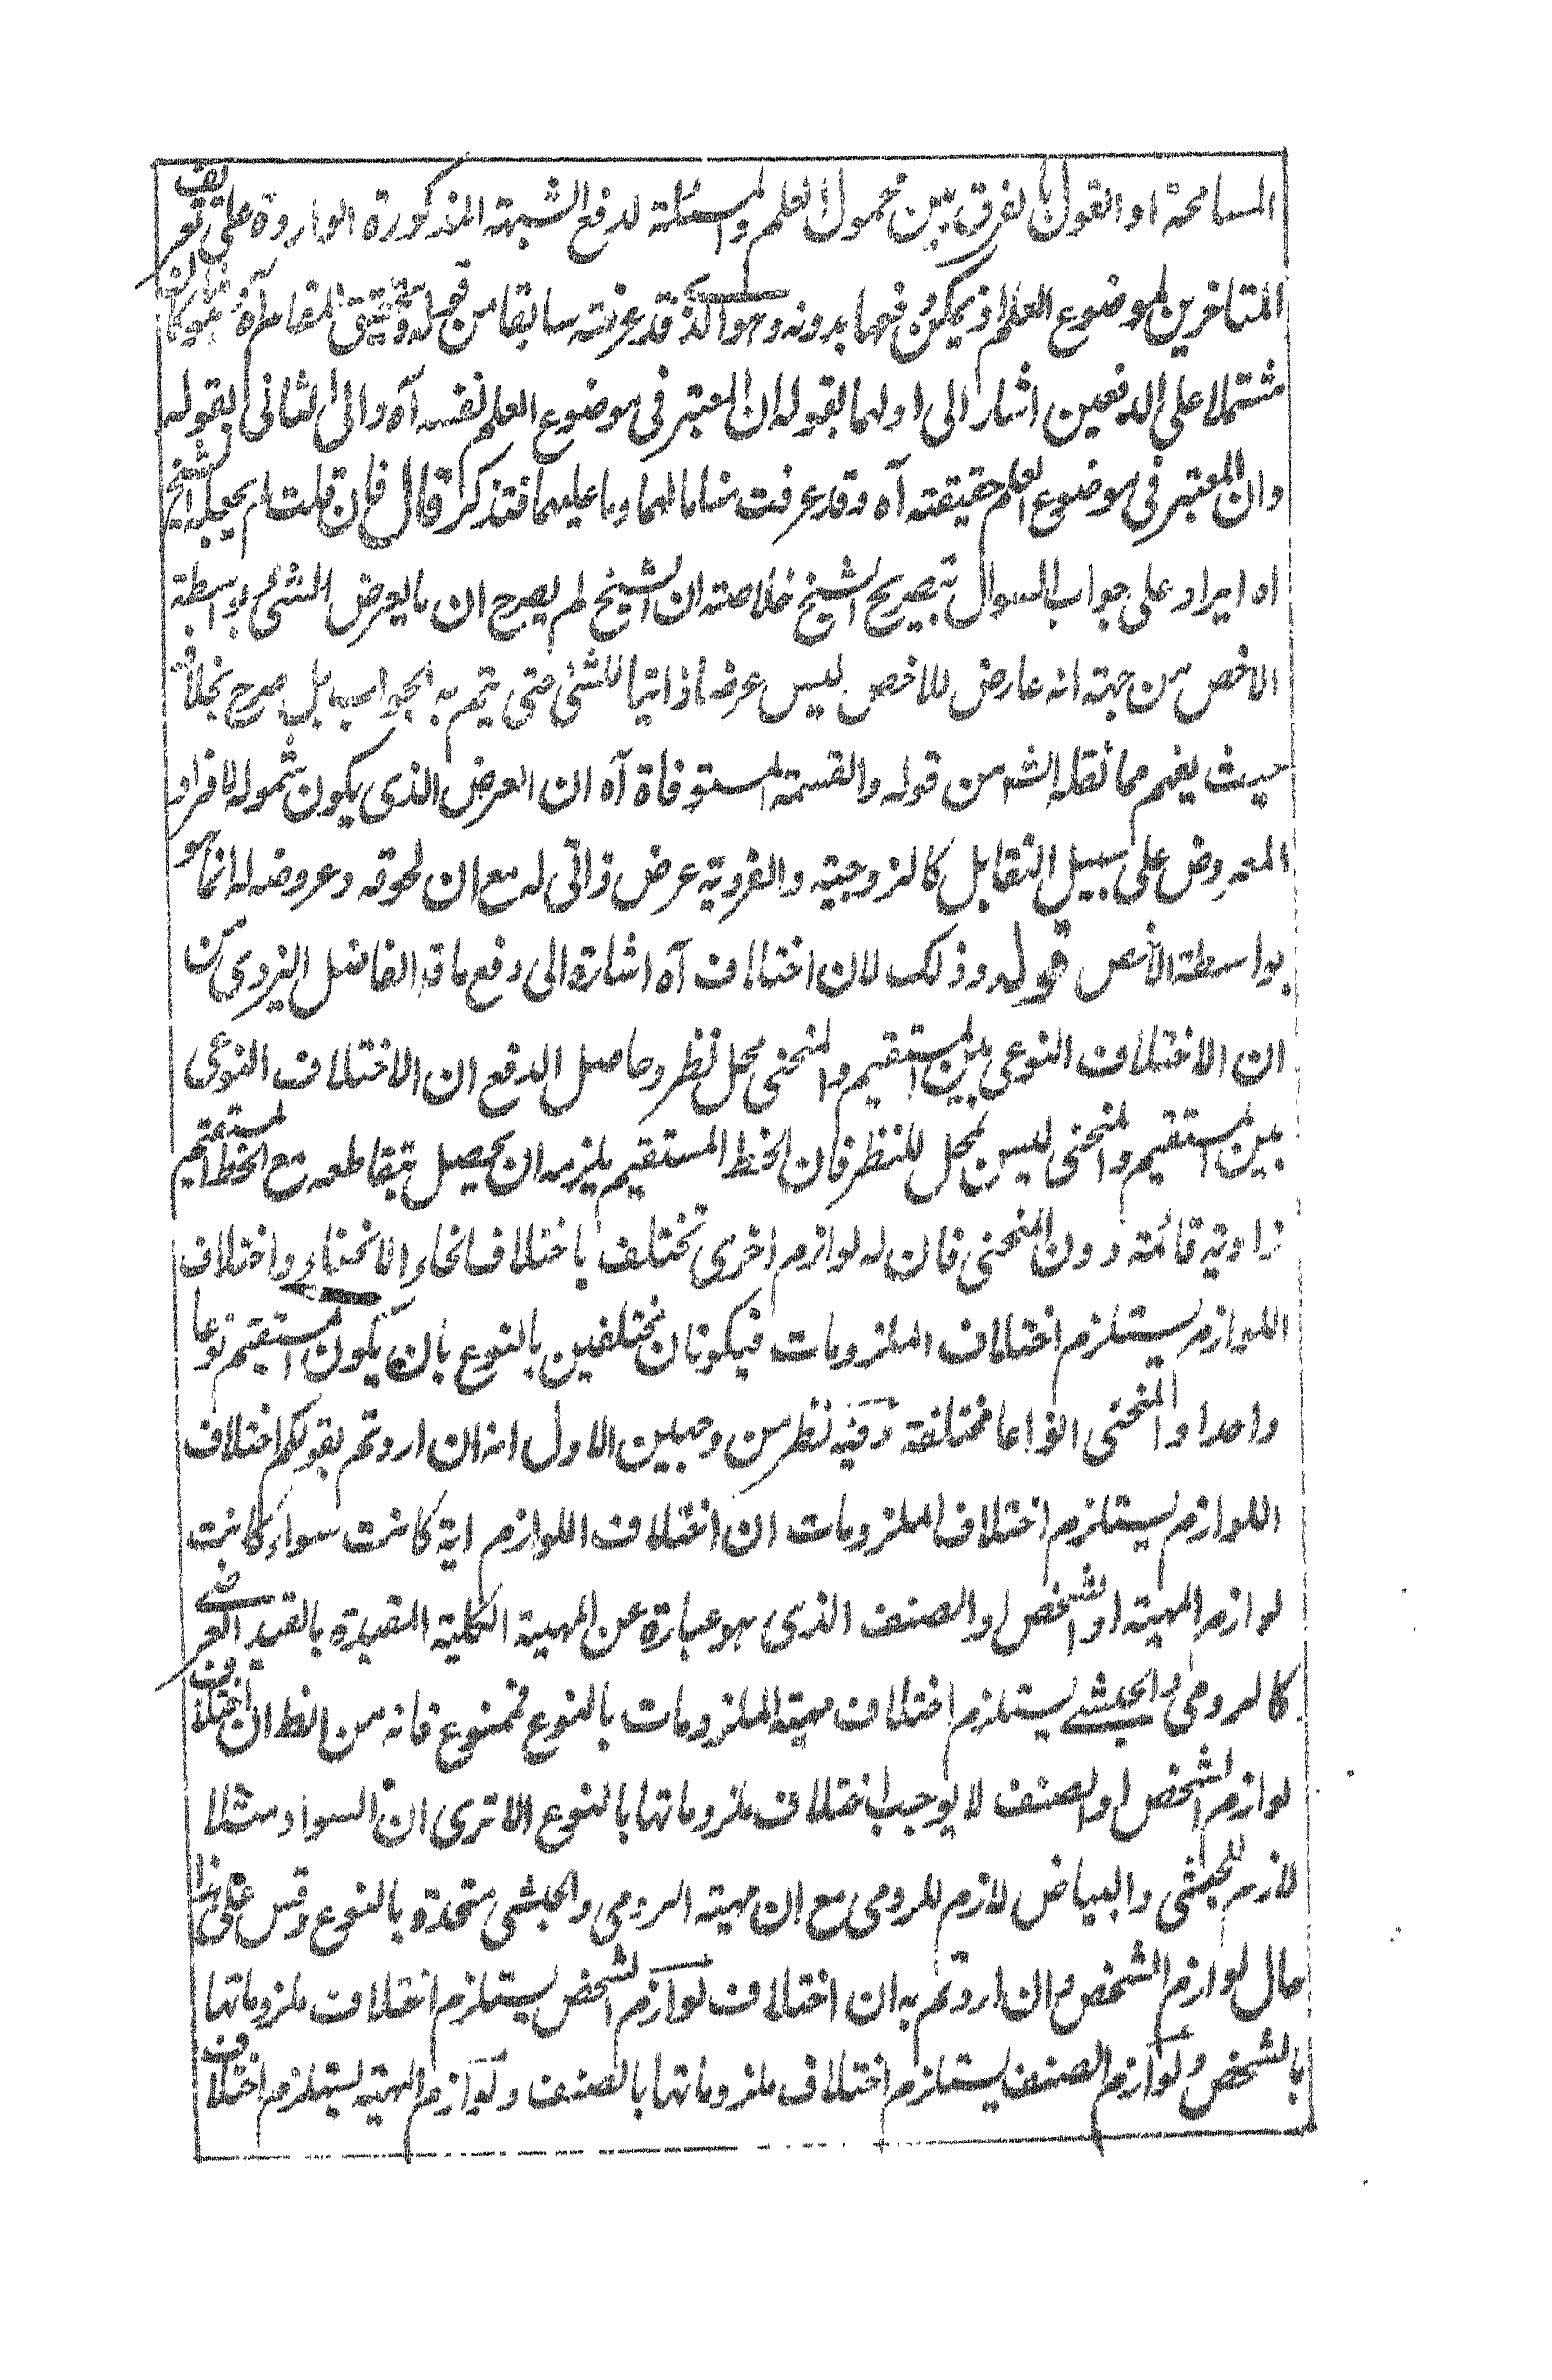 المسامحة او القول بالفرق بين محمول العلم والمسئلة لدفع الشبهة المذكورة الواردة على تعريف
المتاخرين لموضوع العلم اذ يمكن دفعها بدونه وهو الذى قد عرفته سابقا من قوله وتحقيق المقام آه لما كان
مشتملا على الدفعين اشار الى اولهما بقوله ان المعتبر فى موضوع العلم نفسه آه والى الثانى بقوله
وان المعتبر فى موضوع العلم حقيقته آه وقد عرفت منا مالهما وما عليهما فتذكر قال فان قلت لم يجعله الشيخ
اه ايراد على جواب السوال بتصريح الشيخ خلاصته ان الشيخ لم يصرح ان ما يعرض للشئ بواسطة
الاخص من جهته انه عارض للاخص ليس عرضا ذاتيا للشئ حتى يتم به الجواب بل صرح بخلافه
حيث يفهم مما نقله الشه من قوله والقسمة المستوفاة آه ان العرض الذى يكون شموله لافراد
المعروض على سبيل التقابل كالزوجية والفردية عرض ذاتى له مع ان لحوقه وعروضه له انما هو
بواسطة الاخص قوله وذلك لان اختلاف آه اشارة الى دفع ماقه الفاضل اليزدى من
ان الاختلاف النوعى بين المستقيم والمنحنى محل نظر وحاصل الدفع ان الاختلاف النوعى
بين المستقيم والمنحنى ليس بمحل للنظر فان الخط المستقيم يلزمه ان يحصل بتقاطعه مع الخط المستقيم
زاوية قائمة دون المنحنى فان له لوازم اخرى تختلف باختلاف انحاء الانحناء واختلاف
اللوازم يستلزم اختلاف الملزومات فيكونان مختلفين بالنوع بان يكون المستقيم نوعا
واحدا والمنحنى انواعا مختلفة وفيه نظر من وجهين الاول انه ان اردتم بقولكم اختلاف
اللوازم يستلزم اختلاف الملزومات ان اختلاف اللوازم اية كانت سواء كانت
لوازم المهية او الشخص او الصنف الذى هو عبارة عن المهية الكلية المقيدة بالقيد العرضى
كالرومى والحبشى يستلزم اختلاف مهية الملزومات بالنوع فممنوع فانه من الظ ان اختلاف
لوازم الشخص او الصنف لا يوجب اختلاف ملزوماتها بالنوع الا ترى ان السواد مثلا
لازم للحبشى والبياض لازم للرومى مع ان مهية الرومى والحبشى متحدة بالنوع وقس على هذا
حال لوازم الشخص وان اردتم به ان اختلاف لوازم الشخص يستلزم اختلاف ملزوماتها
بالشخص ولوازم الصنف يستلزم اختلاف ملزوماتها بالصنف ولوازم المهية يستلزم اختلاف